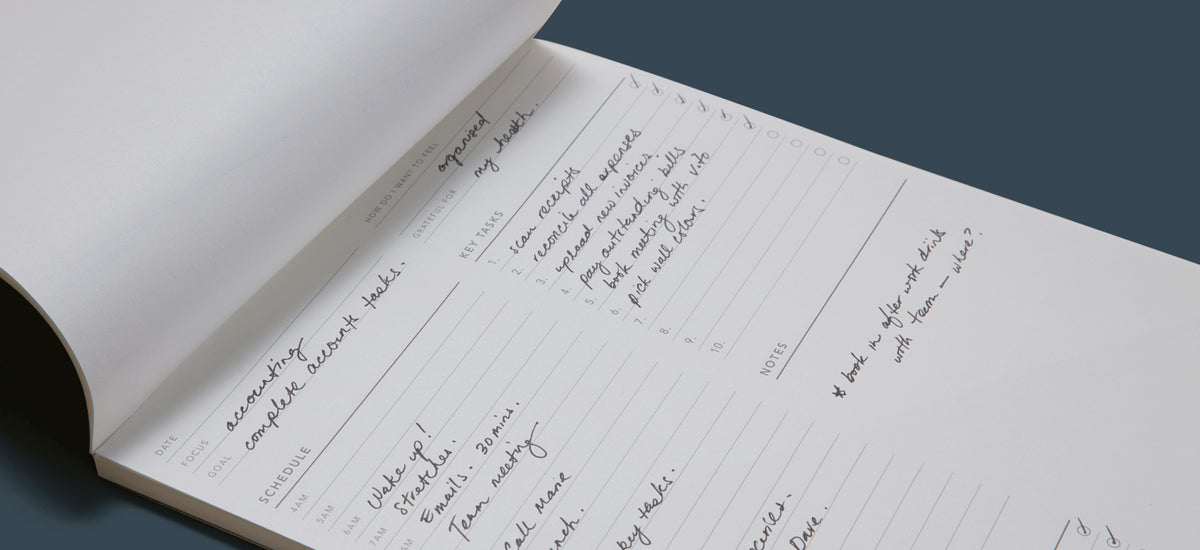 DATE
FOCUS accounting
GOAL complete accounts tasks.
HOW DO I WANT TO FEEL organised
GRATEFUL FOR my health.
SCHEDULE
4AM
5AM
6AM Wake up!
7AM Stretches.
AM Emails. 30 mins.
Team meeting
Call Marie
key tasks.
Dave.
KEY TASKS
1. scan receipts
2. reconcile all expenses
3. upload new invoices
4. pay outstanding bills
5. book meeting with Vito
6. pick wall colours.
7.
8.
9.
10.
NOTES
* book in after work drink
with team – where?